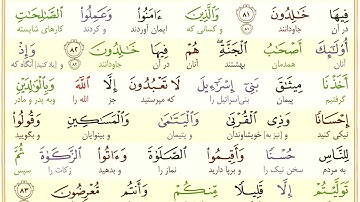 فِيهَا خَٰلِدُونَ ۸۱ وَالَّذِينَ ءَامَنُوا وَعَمِلُوا الصَّٰلِحَٰتِ
در آن جاودانند و کسانی که ایمان آوردند و کردند کارهای شایسته
أُولَٰٓئِكَ أَصْحَٰبُ الْجَنَّةِ هُمْ فِيهَا خَٰلِدُونَ ۸۲ وَإِذْ
آنان همدمان بهشتند آنان در آن جاودانند و [یاد کنید] آنگاه که
أَخَذْنَا مِيثَٰقَ بَنِيٓ إِسْرَٰٓءِيلَ لَا تَعْبُدُونَ إِلَّا اللَّهَ وَبِالْوَٰلِدَيْنِ
گرفتیم پیمان بنی‌اسرائیل را که مپرستید جز الله را و به پدر و مادر
إِحْسَانًا وَذِي الْقُرْبَىٰ وَالْيَتَٰمَىٰ وَالْمَسَٰكِينِ وَقُولُوا
نیکی کنید و [نیز به] خویشاوندان و یتیمان و بینوایان و بگویید
لِلنَّاسِ حُسْنًا وَأَقِيمُوا الصَّلَوٰةَ وَءَاتُوا الزَّكَوٰةَ ثُمَّ
به مردم سخن نیک را و برپا دارید نماز را و بدهید زکات را سپس
تَوَلَّيْتُمْ إِلَّا قَلِيلًا مِنْكُمْ وَأَنْتُمْ مُعْرِضُونَ ۸۳